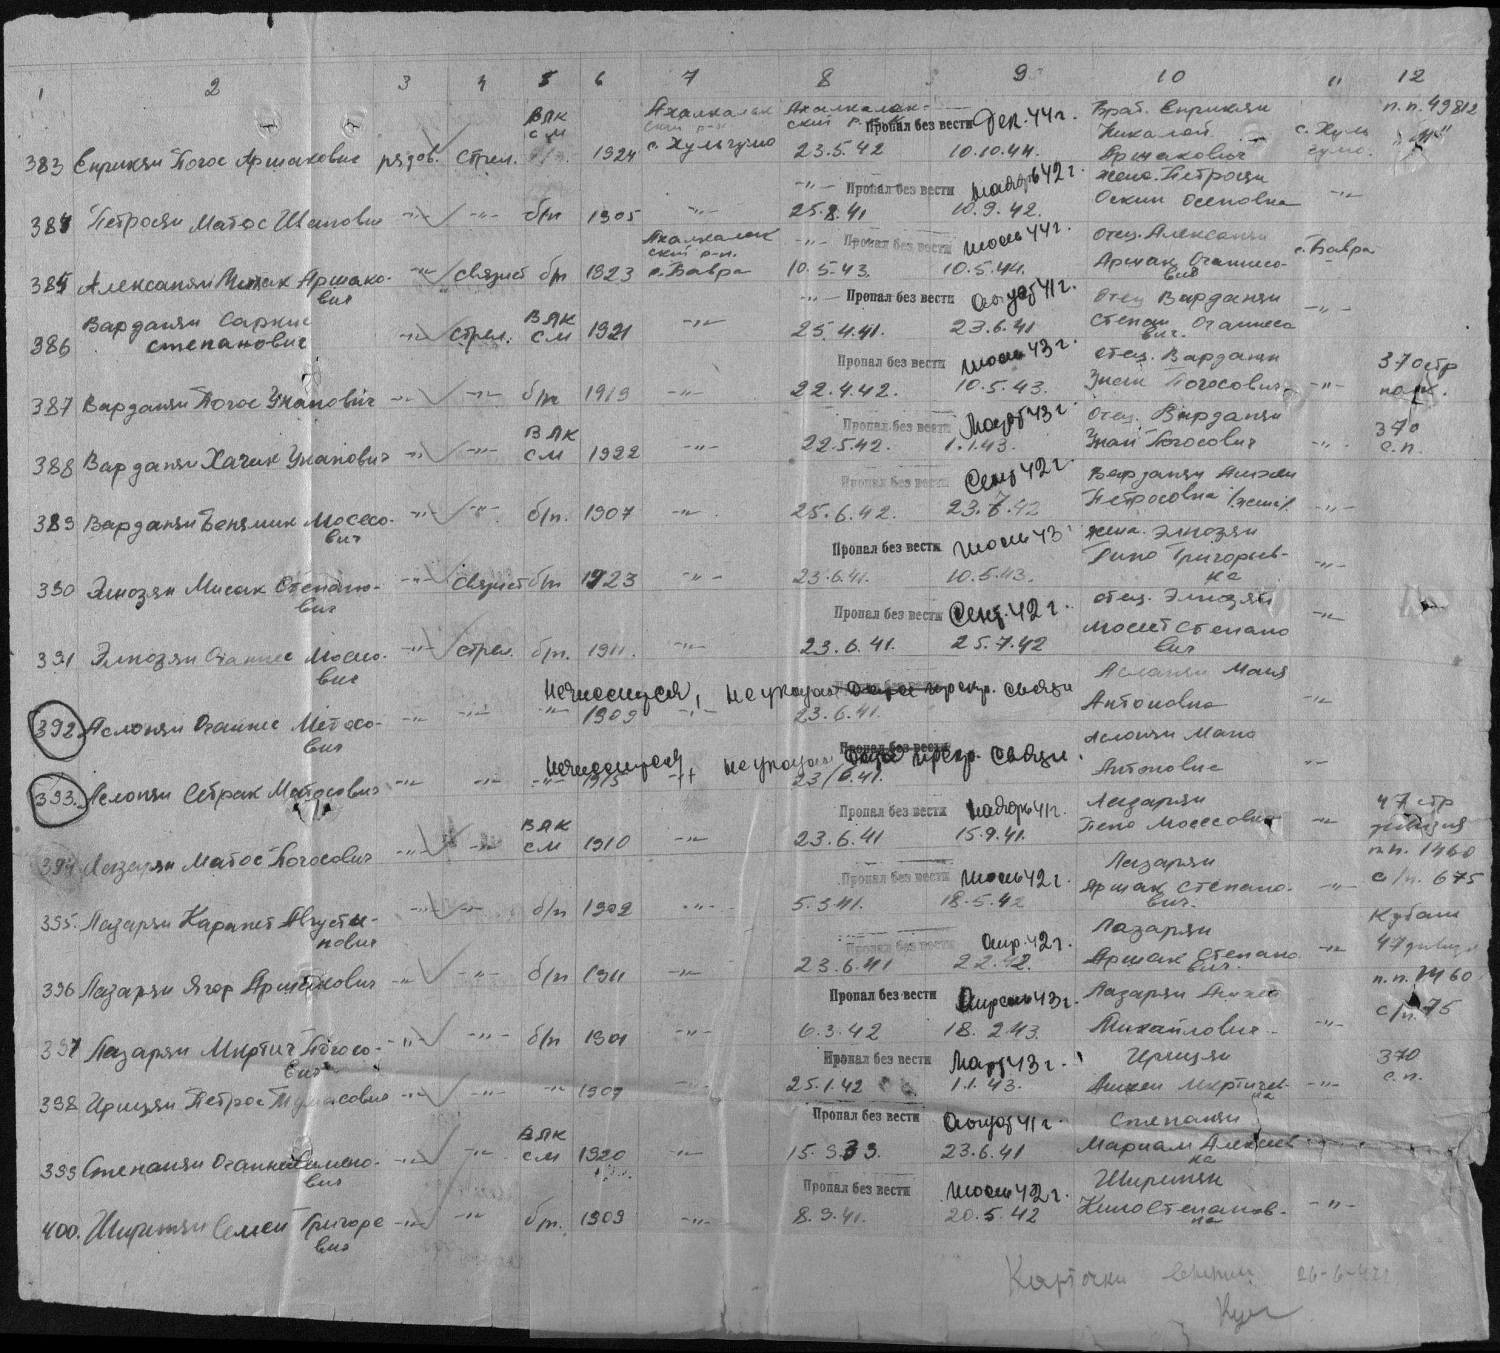 1 2 3 4 5 6 7 8 9 10 11 12
383 Енрикян Погос Аршакович рядов. стрел. ВЛК см 1924 Ахалкалак ский р-н с. Хульгумо Ахалкалак- ский 23.5.42 Пропал без вести Дек. 44 г. 10.10.44. Брат. Енрикян Николай Аршакович с. Хуль гумо. п.п. 49812
384 Петросян Матос Иванович -"- -"- б/п 1905 -"- -"- 25.8.41 Пропал без вести Ноябрь 42 г. 10.9.42. жена. Петросян Осиповна -"-
385 Алексанян Аршако- вич -"- связист б/п 1923 Ахалкалак ский р-н. с. Бавра -"- 10.5.43. Пропал без вести Июль 44 г. 10.5.44. отец. Алексанян Аршак Оганнесо- вич с. Бавра
386 Варданян Саркис Степанович -"- стрел. ВЛК СМ 1921 -"- -"- 25.4.41. Пропал без вести Август 41 г. 23.6.41 отец Варданян Степан Оганнесо вич. -"-
387 Варданян Погос Унанович -"- -"- б/п 1919 -"- 22.4.42. Пропал без вести Июль 43 г. 10.5.43. отец. Варданян Унан Погосович -"- 370 стр полк.
388 Варданян Хачик Унанович -"- -"- ВЛК СМ 1922 -"- 22.5.42. Пропал без вести Март 43 г. 1.1.43. отец. Варданян Унан Погосович -"- 370 с.п.
389 Варданян Бенямин Мосесо- вич -"- -"- б/п. 1907 -"- 25.6.42. Пропал без вести Сент 42 г. 23.7.42 Варданян Петросовна /жена/. -"-
390 Элмозян Мисак Степано- вич -"- связист б/п 1923 -"- 23.6.41. Пропал без вести Июль 43 г 10.5.43. жена. Элмозян Григорьев- на -"-
391 Элмозян Оганнес вич -"- стрел. б/п. 1911. -"- 23.6.41. Пропал без вести Сент. 42 г. 25.7.42 отец. Элмозян Степано вич -"-
392. Аслонян Оганнес Матосо- вич -"- -"- -"- 1909 -"- 23.6.41. прекр. связи Аслонян Маня Антоновна -"-
393. Аслонян Сетрак Матосович -"- -"- -"- 1915 23/6.41. Пропал без вести прекр. связи. Аслонян Антоновна -"-
394 Лазарян Матос Погосович -"- -"- ВЛК СМ 1910 -"- 23.6.41 Пропал без вести Ноябрь 41 г. 15.9.41. Лазарян Мосесовна -"- 47 стр дивизия п.п. 1460 с/п. 675
395. Лазарян Карапет Августы- нович -"- -"- б/п 1902 -"- 5.3.41. Пропал без вести Июль 42 г. 18.5.42 Лазарян Аршак Степано- вич. -"- Кубани
396 Лазарян Ягор Аршакович -"- -"- б/п 1911 -"- 23.6.41 Пропал без вести Апр. 42 г. Лазарян Аршак Степано вич. -"- 47 дивизи п.п. 1460 с/п. 75
397 Лазарян Мкртич Погосо- вич -"- -"- б/п 1901 -"- 6.3.42 Пропал без вести Апрель 43 г. 18.2.43. Лазарян Михайлович -"-
398 Ирицян Петрос -"- -"- -"- 1907 -"- 25.1.42 Пропал без вести Март 43 г. 1.1.43. Ирицян Мкртичев- на -"- 370 с.п.
399 Степанян Оганнес Симено- вич -"- -"- ВЛК СМ 1920 -"- 15.9.39. Пропал без вести Август 41 г. 23.6.41 Степанян Мариам Алексеев на
400. Ширинян Семен Григоре вич -"- -"- б/п. 1909 -"- 8.9.41. Пропал без вести Июль 42 г. 20.5.42 Ширинян Степанов- на -"-
Карточки 26-6-47